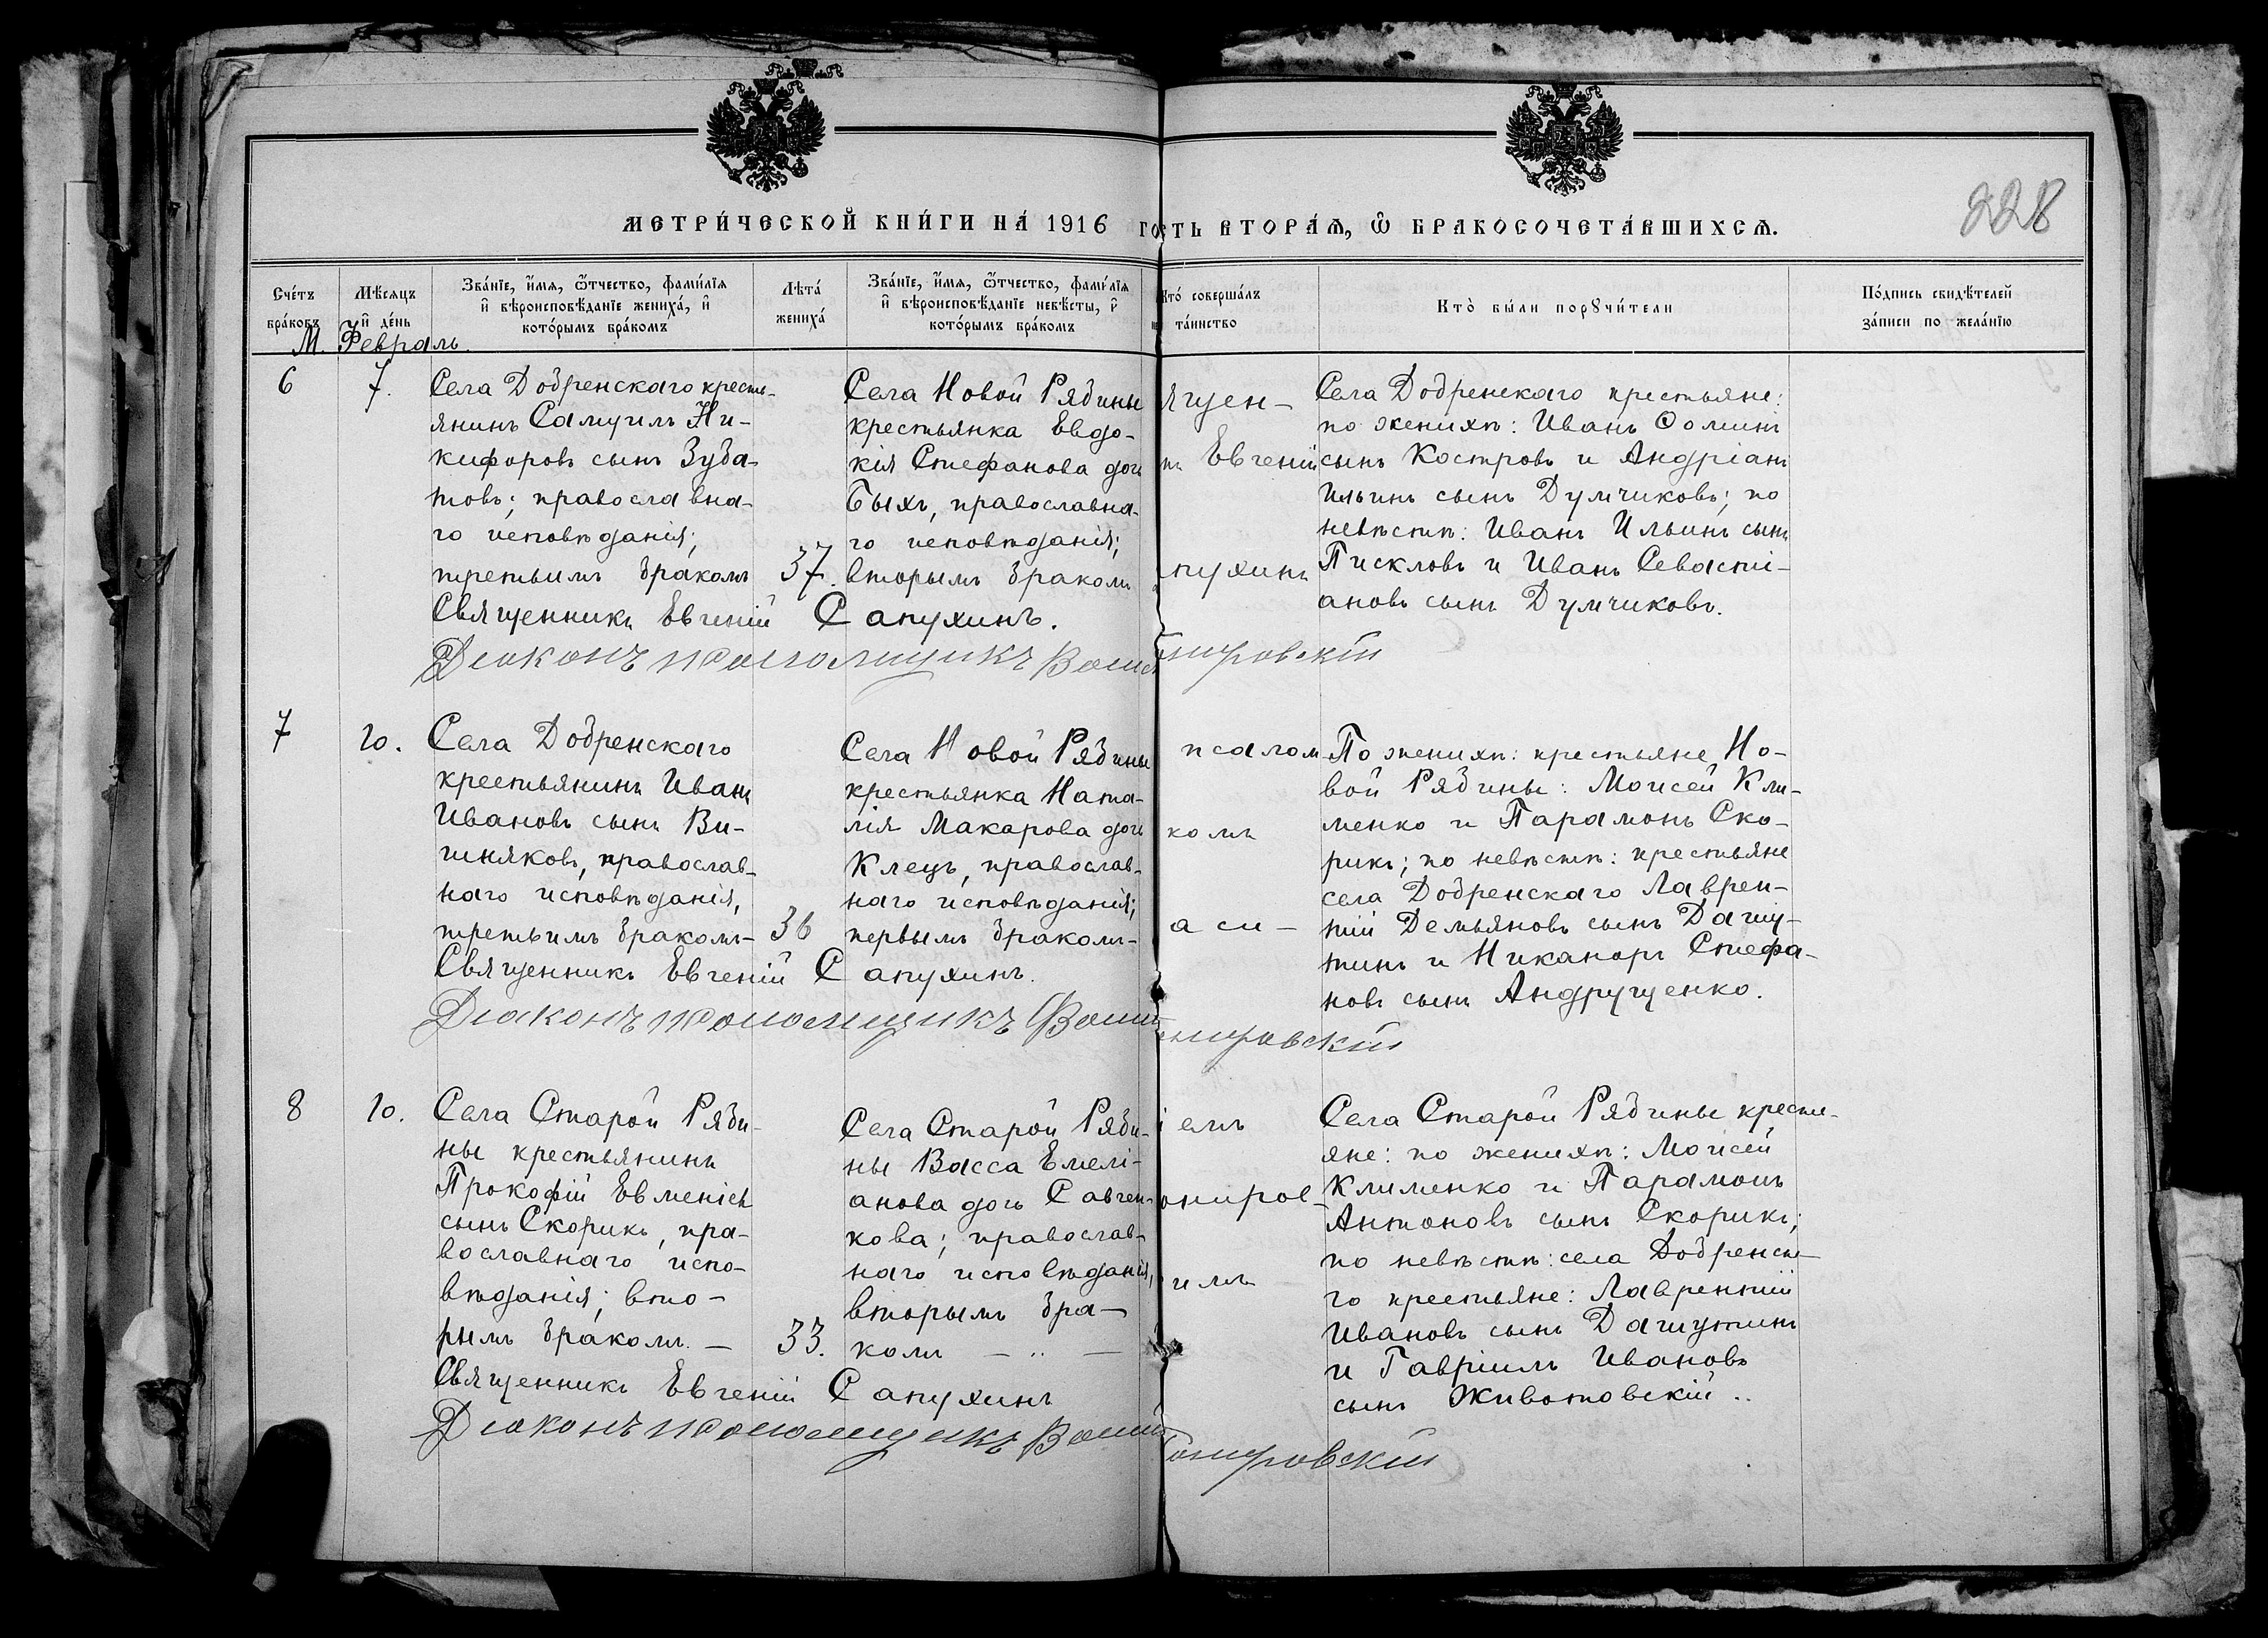 228
МЕТРИ́ЧЕСКОЙ КНИ́ГИ НА́ 1916 ГО
СТЬ ВТОРА́Ѧ, Ѡ҆ БРАКОСОЧЕТА́ВШИХСѦ.
Сче́тъ бра́ковъ
Мѣ́сяцъ и҆ де́нь
Зва́нїе, и҆́мѧ, ѻ҆́тчество, фами́лїѧ
и҆ вѣроисповѣ́данїе жениха̀, и҆
кото́рымъ бра́комъ
Лѣта́
жениха́
Зва́нїе, и҆́мѧ, ѻ҆́тчество, фами́лїѧ
и҆ вѣроисповѣ́данїе невѣ́сты, и҆
кото́рымъ бра́комъ
Кто́ соверша́лъ
та́инство
Кто̀ бы́ли порꙋчи́тели
По́дпись свидѣ́телей
за́писи по жела́нїю
М. Февраль.
6
7.
Села Добренскаго кресть-
янинъ Самуилъ Ни-
кифоровъ сынъ Зуба-
товъ; православна-
го исповѣданія;
третьимъ бракомъ
37.
Села Новой Рябины
крестьянка Евдо-
кія Стефанова дочь
Быхъ, православна-
го исповѣданія;
вторымъ бракомъ
ящен-
Евгеній
пухинъ
Села Добренскаго крестьяне:
по женихѣ: Иванъ Ѳоминъ
сынъ Костровъ и Андріанъ
Ильинъ сынъ Думчиковъ; по
невѣстѣ: Иванъ Ильинъ сынъ
Пискловъ и Иванъ Севасті-
ановъ сынъ Думчиковъ.
Священникъ Евгеній Сапухинъ.
Діаконъ псаломщикъ
7
10.
Села Добренскаго
крестьянинъ Иванъ
Ивановъ сынъ Ви-
шняковъ, православ-
наго исповѣданія,
третьимъ бракомъ-
36
Села Новой Рябины
крестьянка Ната-
лія Макарова дочь
Клецъ, православ-
наго исповѣданія;
первымъ бракомъ-
псалом
комъ
аси-
По женихѣ: крестьяне Но-
вой Рябины: Моисей Кли-
менко и Парамонъ Ско-
рикъ; по невѣстѣ: крестьяне
села Добренскаго Лаврен-
тій Демьяновъ сынъ Дашу-
тинъ и Никаноръ Стефа-
новъ сынъ Андрущенко.
Священникъ Евгеній Сапухинъ.
Діаконъ псаломщикъ
8
10.
Села Старой Ряби-
ны крестьянинъ
Прокофій Евменіевъ
сынъ Скорикъ, пра-
вославнаго испо-
вѣданія; вто-
рымъ бракомъ. —
33.
Села Старой Ряби-
ны Васса Емелі-
анова дочь Савчен-
кова; православ-
наго исповѣданія,
вторымъ бра-
комъ — .. —
емъ
омиров-
имъ
Села Старой Рябины кресть-
яне: по женихѣ: Моисей
Клименко и Парамонъ
Антоновъ сынъ Скорикъ;
по невѣстѣ: села Добренска-
го крестьяне: Лаврентій
Ивановъ сынъ Дашутинъ
и Гавріилъ Ивановъ
сынъ Животовскій..
Священникъ Евгеній Сапухинъ
Діаконъ псаломщикъ